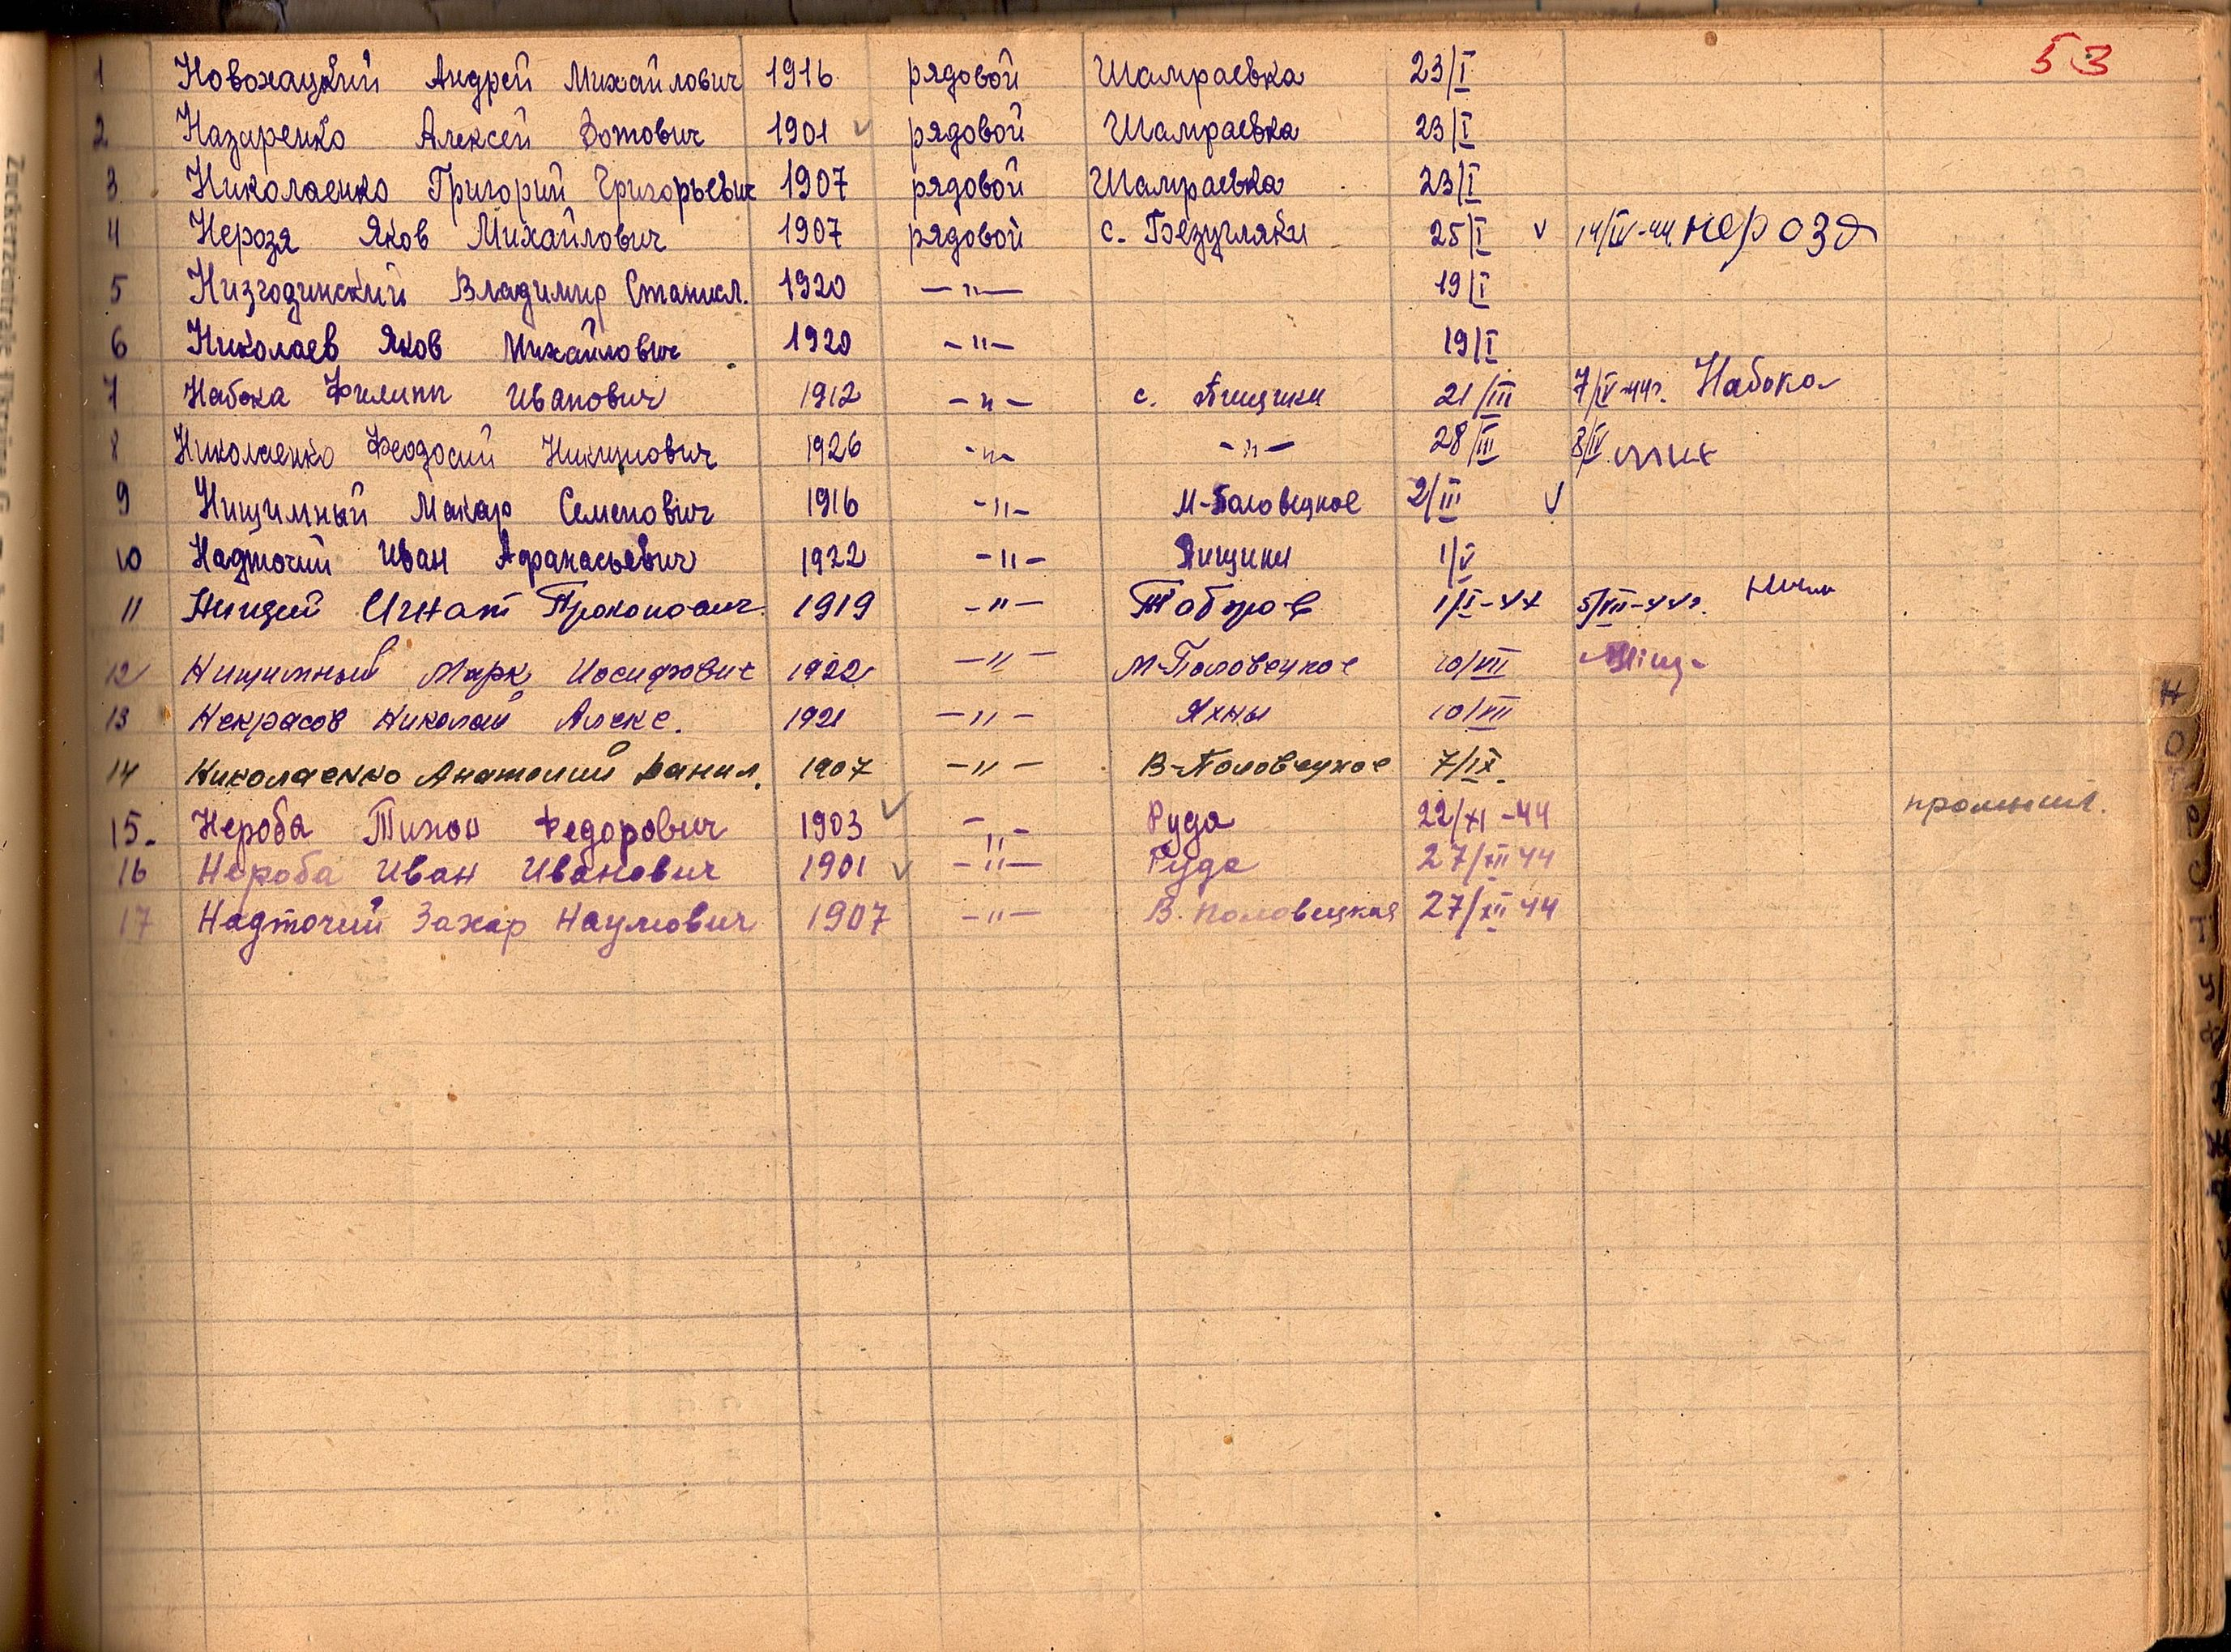 53
1 Новохацкий Андрей Михайлович 1916 рядовой Шамраевка 23/I
2 Назаренко Алексей Зотович 1901 ✓ рядовой Шамраевка 23/I
3 Николаенко Григорий Григорьевич 1907 рядовой Шамраевка 23/I
4 Нерозя Яков Михайлович 1907 рядовой с. Безугляки 25/I ✓ 14/IV-44 нерозя
5 Низгодинский Владимир Станисл. 1920 —"— 19/I
6 Николаев Яков Михайлович 1920 -"- 19/I
7 Набока Филипп Иванович 1912 -"- с. Пищики 21/III 7/IV-44г. Набока
8 Николаенко Феодосий Никитович 1926 -"- -"- 28/III 8/IV
9 Нищимный Макар Семенович 1916 -"- М-Половецкое 2/III ✓
10 Надточий Иван Афанасьевич 1922 -"- Пищики 1/V
11 Нищий Игнат Прокопович 1919 -"- 1/I-44 5/VII-44г.
12 Нищимный Марк Иосифович 1922 -"- М-Половецкое 10/VII
13 Некрасов Николай Алекс. 1921 -"- Яхны 10/VII
14 Николаенко Анатолий Данил. 1907 -"- В-Половецкое 7/IX.
15. Нероба Тихон Федорович 1903 ✓ -"- Руда 22/XI-44
16 Нероба Иван Иванович 1901 ✓ -"- Руда 27/XII 44
17 Надточий Захар Наумович 1907 -"- В. Половецкая 27/XII 44
Н
О
П
Р
С
Т
У
Ф